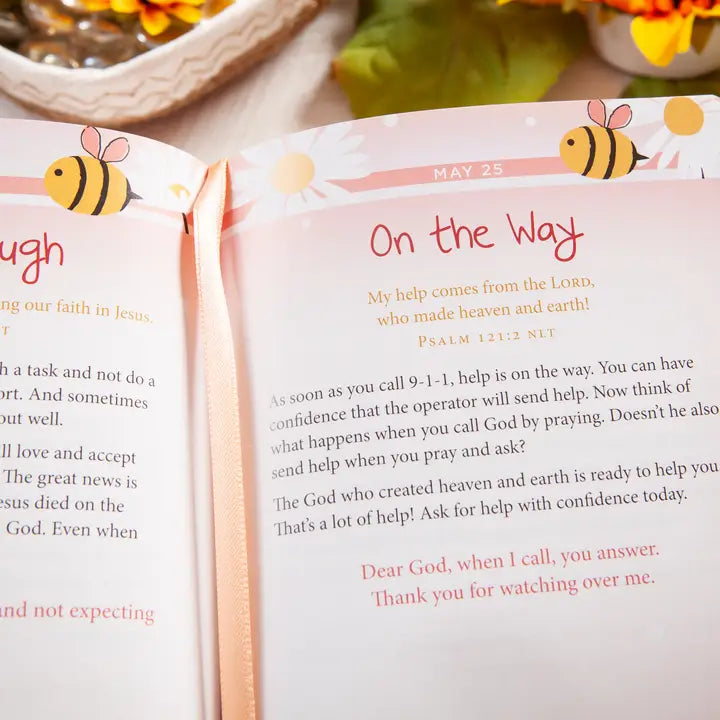 ugh
ng our faith in Jesus.
T
h a task and not do a
ort. And sometimes
out well.
ll love and accept
The great news is
esus died on the
God. Even when
and not expecting
MAY 25
On the Way
My help comes from the LORD,
who made heaven and earth!
PSALM 121:2 NLT
As soon as you call 9-1-1, help is on the way. You can have
confidence that the operator will send help. Now think of
what happens when you call God by praying. Doesn't he also
send help when you pray and ask?
The God who created heaven and earth is ready to help you.
That's a lot of help! Ask for help with confidence today.
Dear God, when I call, you answer.
Thank you for watching over me.